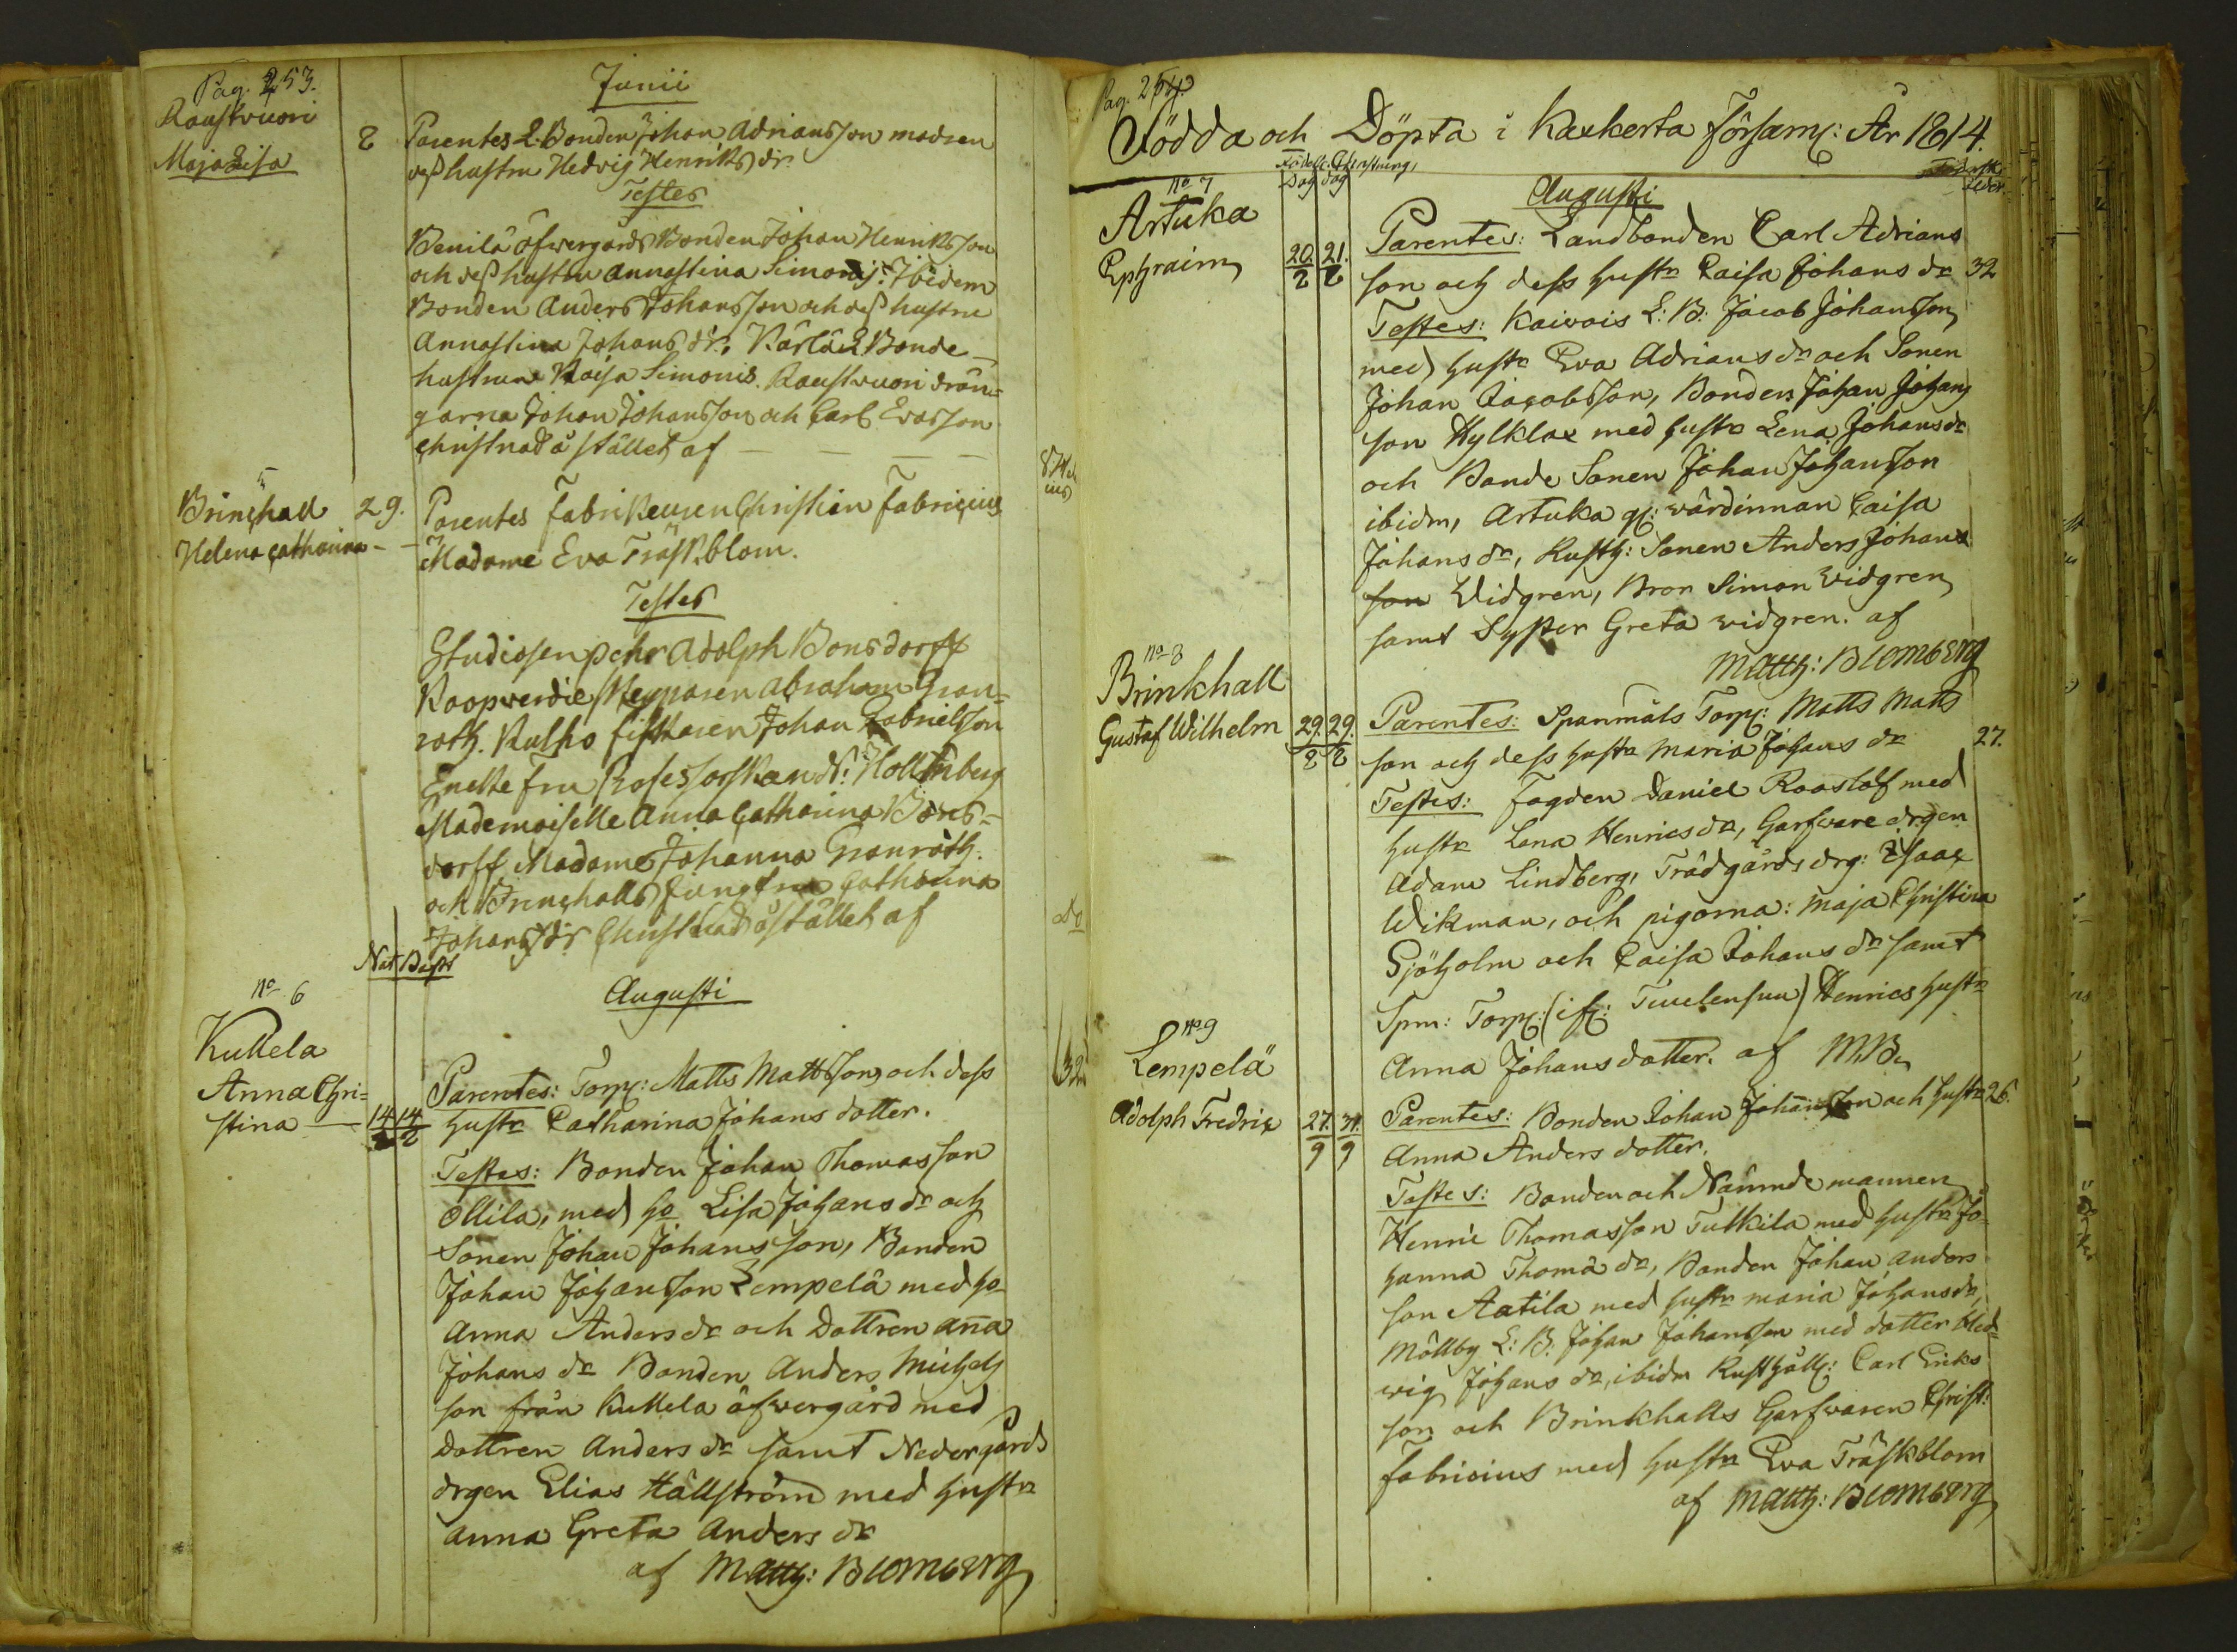 Pag. 253.
Junii
Raustvuori
Maja Lisa
8 Parentes L. Bonden Johan Adriansson modren
dess hustru Hedvig Henriks dr.
Testes
Benilä öfvergårds Bonden Johan Henriksson
och dess hustru Annastina Simonis: Ibidem
Bonden Anders Johansson och dess hustru
Annastina Johans dr. Kärlä L. Bonde
hustrun Kaisa Simonis. Raustvuori drän-
garna Johan Johansson och Carl Evasson
Christnad å stället af — — — —
5
Brinchall 29. Parentes Fabrikeuren Christian Fabricius
Helena Catharina — Madame Eva Träskblom.
Testes
Studiosen Pehr Adolph Bonsdorff
Koopverdie Skepparen Abraham Gran-
roth. Kulho fiskaren Johan Gabrielsson
Enkefru Professorskan Hollenberg
Mademoiselle Anna Catharina Bons-
dorff Madame Johanna Granroth.
och Brinchalls Jungfru Catharina
Johans dr Christnad å stället af
Nat Bapt
No 6
Augusti
Kullela
Anna Chri-
stina — 14/8 14/8
Parentes: Torp: Matts Mattsson och dess 32
hustr Catharina Johans dotter.
Testes: Bonden Johan Thomasson
Ollila, med ho Lisa Johans dr och
Sonen Johan Johansson, Bonden
Johan Johansson Lempelä med ho
Anna Anders dr och Dottren Anna
Johans dr Bonden Anders Michels
son från Kullela öfvergård med
Dottren Anders dr samt Nedergårds
drgen Elias Hällström med hustr
Anna Greta Anders dr
af Matth: Blomberg
Pag. 254.
Födda och Döpta i Kaxkerta Församl: År 1814.
Dag Dag
Augusti
No 7
Artuka
Ephraim 20./8 21./8
Parentes: Landbonden Carl Adrians
son och dess hustr Caisa Johans dr 32
Testes: Kaivois L: B: Jacob Johansson
med hustr Eva Adrians dr och Sonen
Johan Jacobsson, Bonden Johan Johans
son Hylklax med hustr Lena Johans dr
och Bonde Sonen Johan Johansson
ibidm, Artuka gl: värdinnan Caisa
Johans dr, Rusth: Sonen Anders Johans
son Widgren, Bror Simon Widgren
samt Syster Greta Widgren. af
Matth: Blomberg
No 8
Brinkhall
Gustaf Wilhelm 29./8 29./8
Parentes: Spanmåls Torp: Matts Matts
son och dess hustr Maria Johans dr 27.
Testes: Fogden Daniel Rooslöf med
hustr Lena Henrics dr, Garfvare drgen
Adam Lindberg, Trädgårds drg: Isaac
Wikman, och pigorna: Maja Christina
Sjöholm och Caisa Johans dr samt
Spm: Torp: Henrics hustr
Anna Johans dotter. af M.B.
No 9
Lempelä
Adolph Fredric 27./9 31./9
Parentes: Bonden Johan Johansson och hustr 26.
Anna Anders dotter.
Testes: Bonden och Nämndemannen
Henric Thomasson Tulkila med hustr Jo-
hanna Thomä dr, Bonden Johan Anders
son Aatila med hustr Maria Johans dr,
Möllby L: B: Johan Johansson med dotter Hed-
wig Johans dr, ibidm Rusthåll: Carl Eriks
son och Brinkhalls Garfvaren Christ:
Fabricius med hustr Eva Träskblom
af Matth: Blomberg